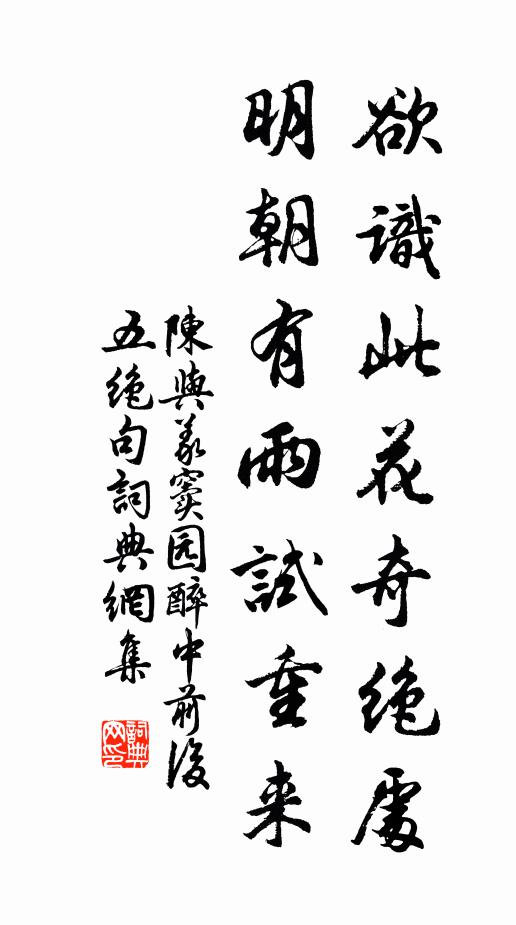 欲識此花奇绝處
明朝有雨試重来
陳與義窦园醉中前後
五绝句詞典網集
詞典网印